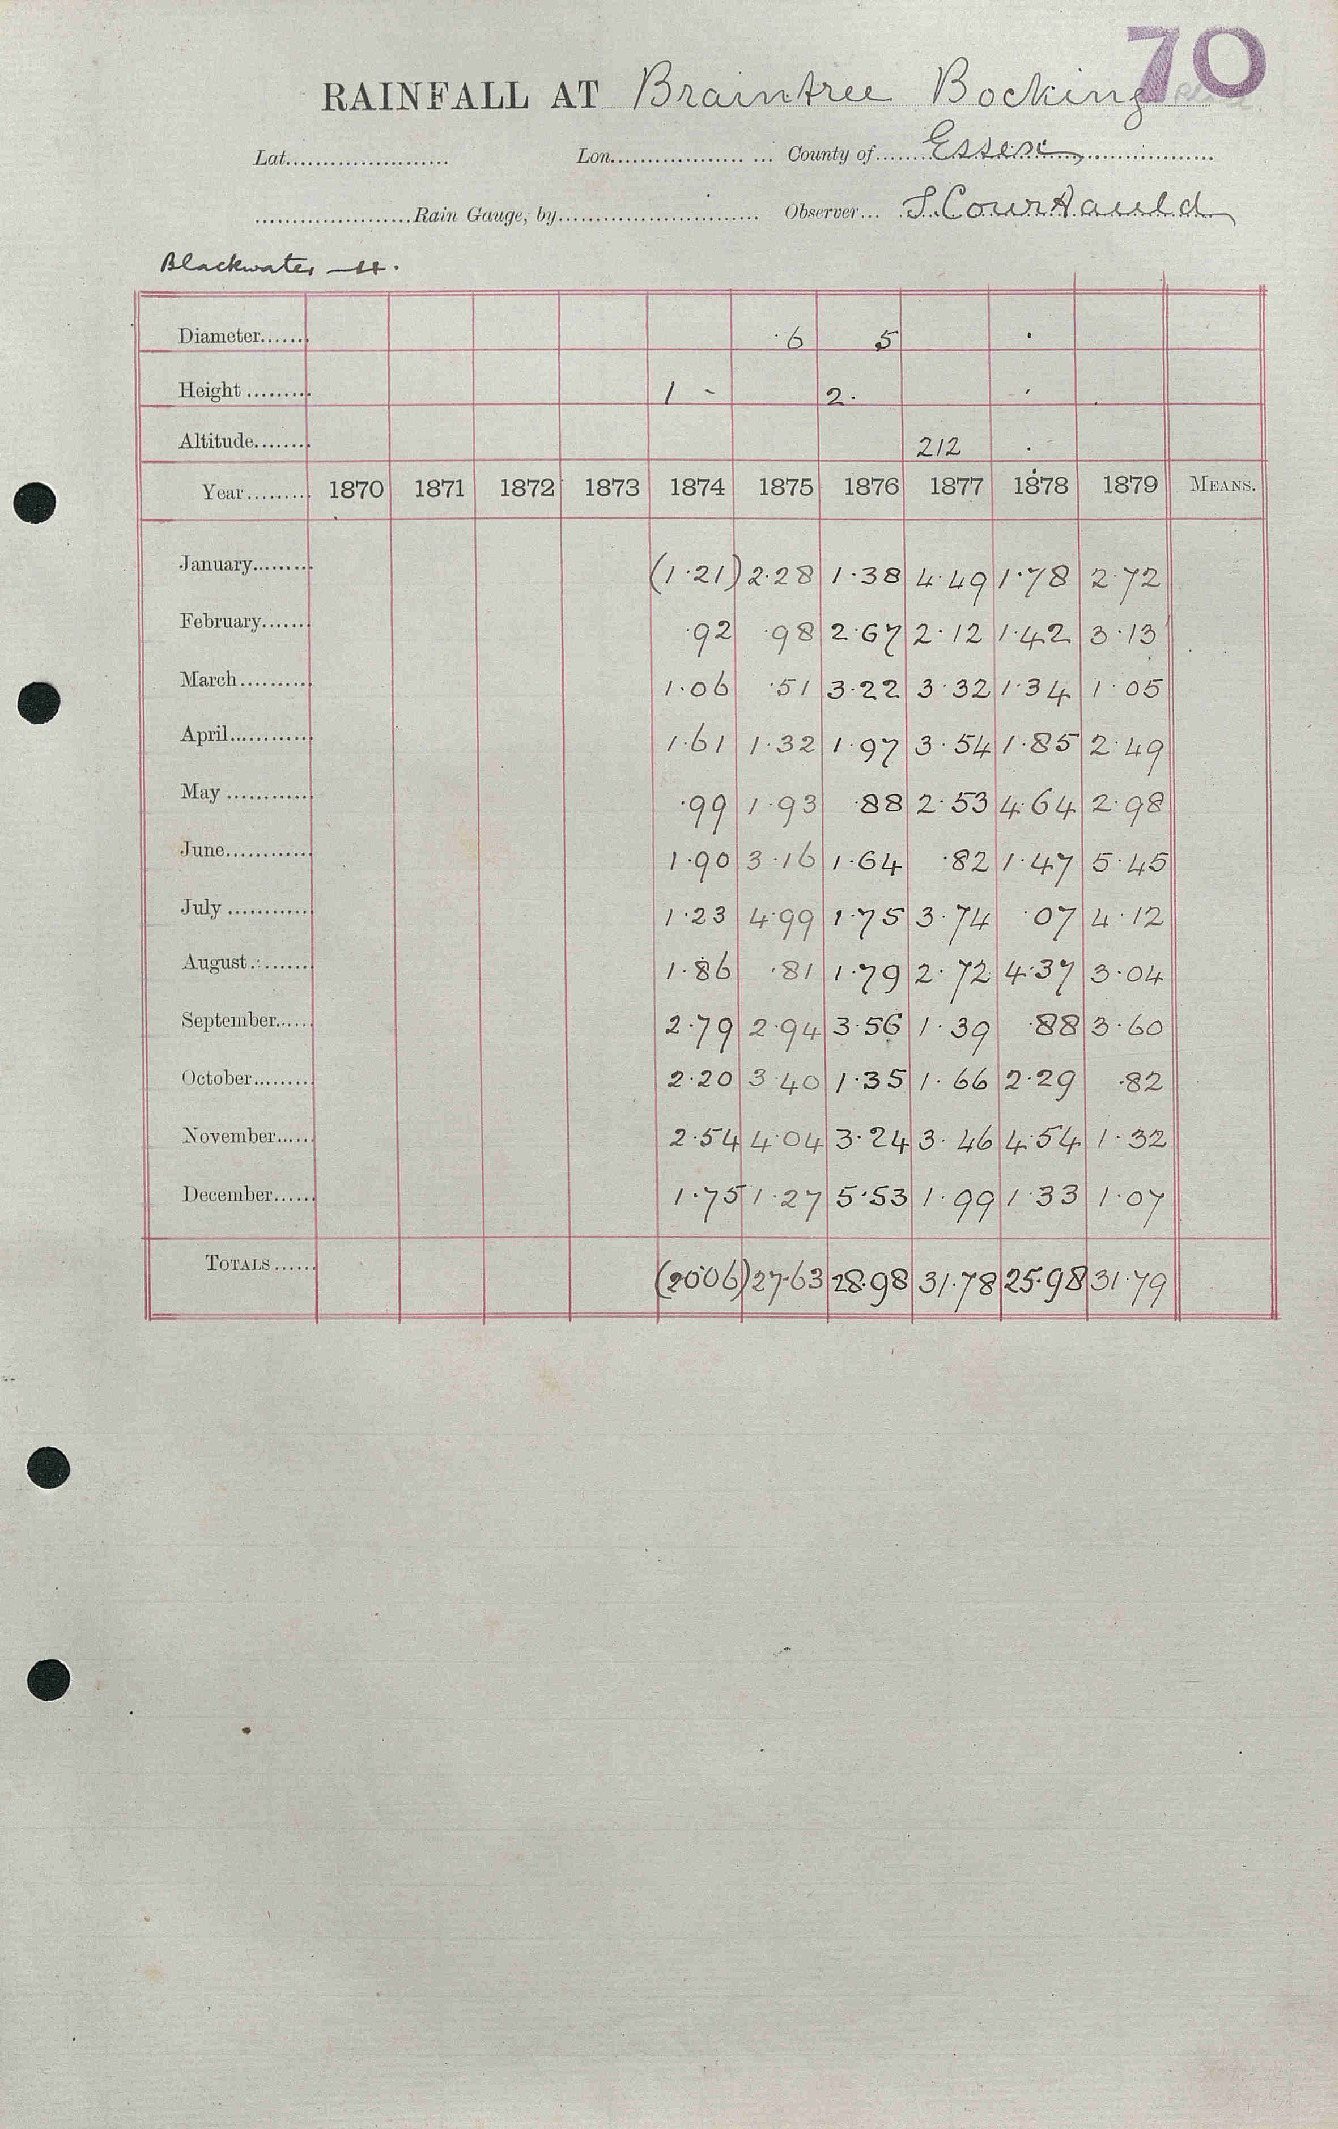 70
RAINFALL AT Braintree Bocking
Lat...................... Lon.................. ... County of........ Essex
.....................Rain Gauge, by........................... Observer... S. Courtauld
Blackwater
Diameter...... ·6 5
Height ......... 1 - 2·
Altitude........ 212
Year......... 1870 1871 1872 1873 1874 1875 1876 1877 1878 1879 MEANS.
January......... (1·21) 2·28 1·38 4·49 1·78 2·72
February....... ·92 ·98 2·67 2·12 1·42 3·13
March.......... 1·06 ·51 3·22 3·32 1·34 1·05
April............ 1·61 1·32 1·97 3·54 1·85 2·49
May ............ ·99 1·93 ·88 2·53 4·64 2·98
June............ 1·90 3·16 1·64 ·82 1·47 5·45
July ............ 1·23 4·99 1·75 3·74 ·07 4·12
August......... 1·86 ·81 1·79 2·72 4·37 3·04
September...... 2·79 2·94 3·56 1·39 ·88 3·60
October......... 2·20 3·40 1·35 1·66 2·29 ·82
November...... 2·54 4·04 3·24 3·46 4·54 1·32
December...... 1·75 1·27 5·53 1·99 1·33 1·07
TOTALS...... (20·06) 27·63 28·98 31·78 25·98 31·79